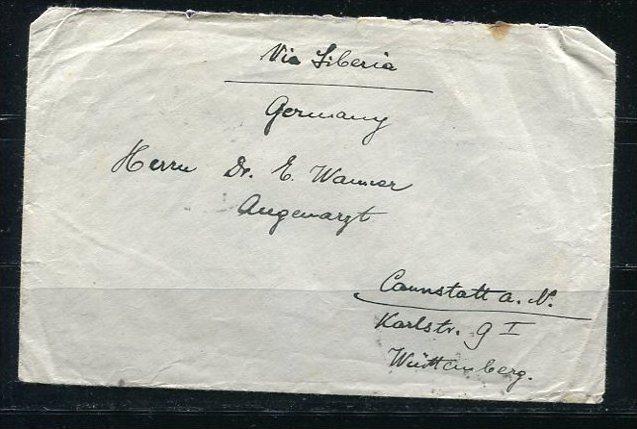 Via Siberia
Germany
Herrn Dr. E. Wanner
Augenarzt
Cannstatt a. N.
Karlstr. 9 I
Württemberg.